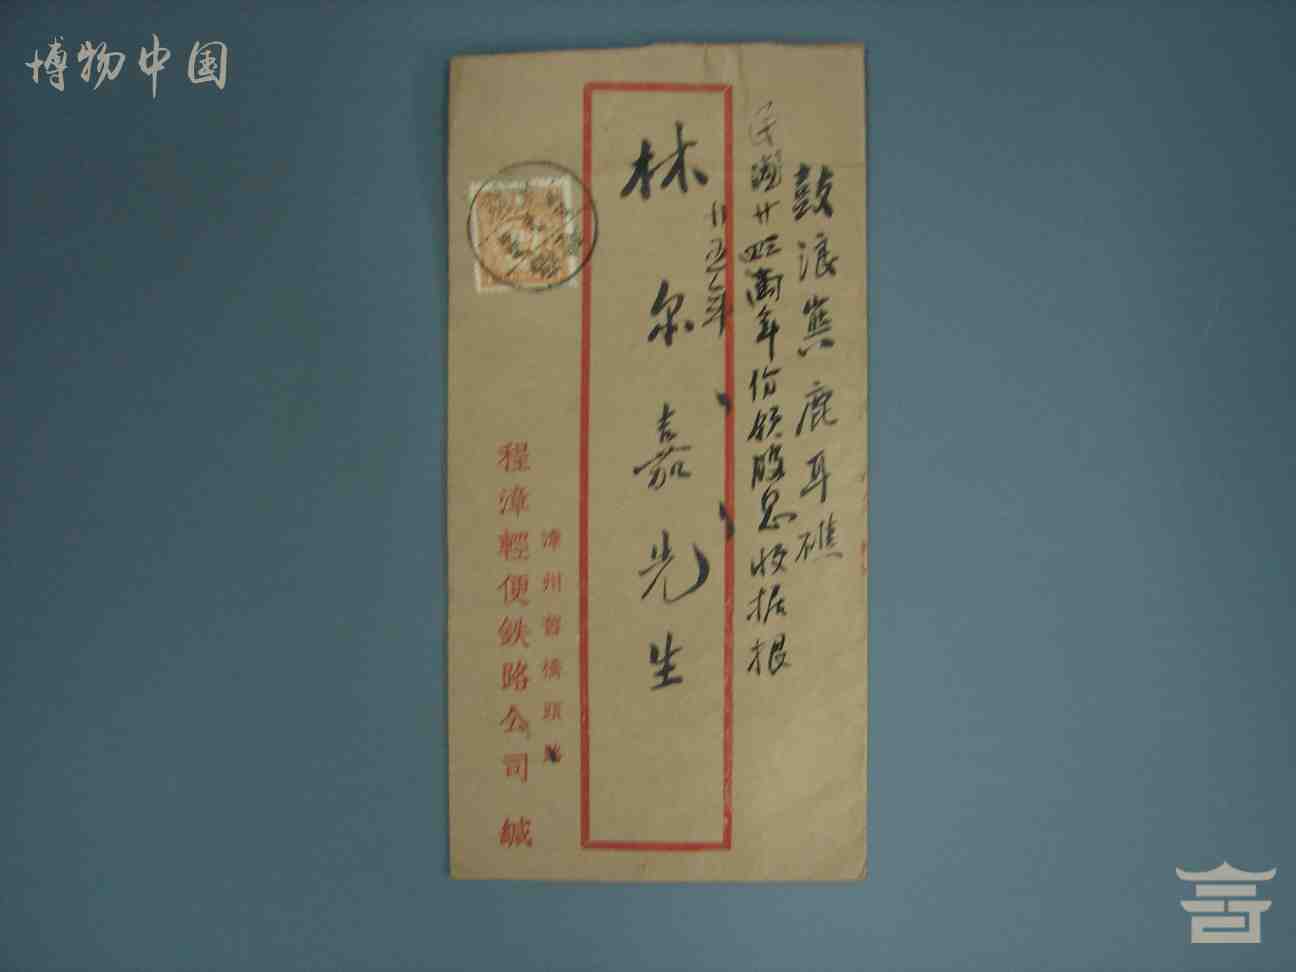 博物中国
鼓浪嶼鹿耳礁
民國廿四三両年份領股息收据根
廿五年
林尔嘉先生
漳州舊橋頭
程漳輕便鉄路公司 緘